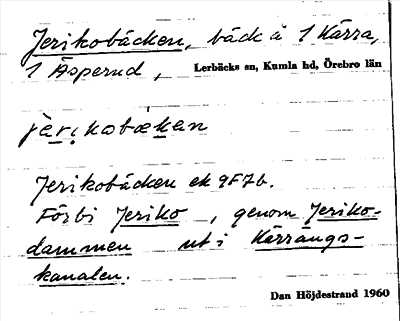 Jerikobäcken, bäck å 1 Kärra,
1 Äsperud, Lerbäcks sn, Kumla hd, Örebro län
jèrikobækən
Jerikobäcken ek 9F7b.
Förbi Jeriko, genom Jeriko-
dammen ut i Kärrängs-
kanalen.
Dan Höjdestrand 1960